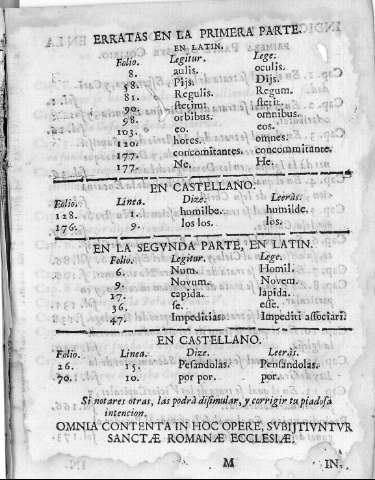 ERRATAS EN LA PRIMERA PARTE.
EN LATIN.
Folio. Legitur. Lege.
8. aulis. oculis.
58. Pijs. Dijs.
81. Regulis. Regum.
90. stetim: stetit.
98. orbibus. omnibus.
103. eo. eos.
120. hores. omnes.
177. concomitantes. concommitante.
177. Ne. He.
EN CASTELLANO.
Folio. Linea. Dize. Leeràs.
128. 1. humilbe. humilde.
176. 9. los los. los.
EN LA SEGVNDA PARTE, EN LATIN.
Folio. Legitur. Lege.
6. Num. Homil.
9. Novum. Novem.
17. capida. lapida.
36. se. esse.
47. Impeditias. Impediti associari.
EN CASTELLANO.
Folio. Linea. Dize. Leeràs.
26. 15. Pesandolas. Pensandolas.
70. 10. por por. por.
Si notares otras, las podrà disimular, y corrigir tu piadosa
intencion.
OMNIA CONTENTA IN HOC OPERE, SVBIJTIVNTVR
SANCTÆ ROMANÆ ECCLESIÆ.
M IN.